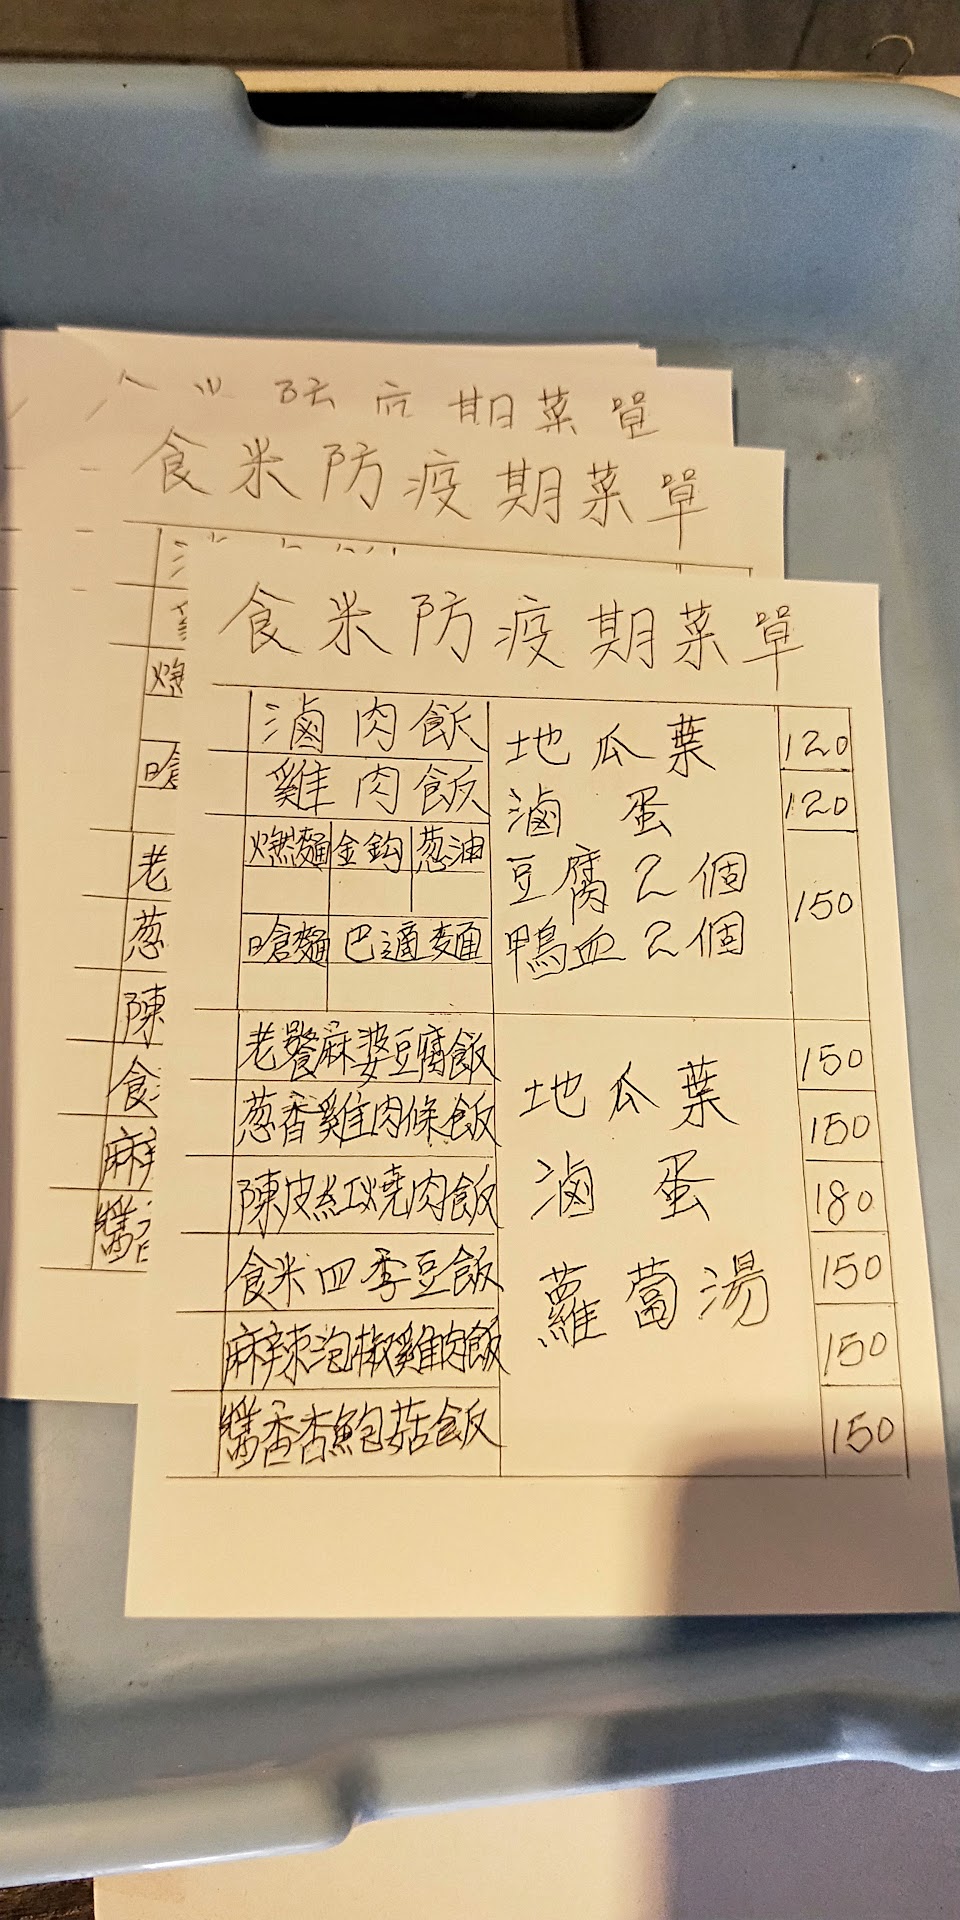 期菜單
食米防疫期菜單
燃
嗆
老
葱
陳
食
麻
醬
食米防疫期菜單
滷肉飯 地瓜葉 120
雞肉飯 滷蛋 120
燃麵 金鈎 葱油 豆腐2個 150
嗆麵 巴適麵 鴨血2個
老饕麻婆豆腐飯 150
葱香雞肉條飯 地瓜葉 150
陳皮紅燒肉飯 滷蛋 180
食米四季豆飯 蘿蔔湯 150
麻辣泡椒雞肉飯 150
醬香杏鮑菇飯 150